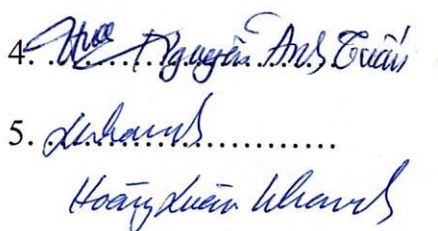 4. Nguyễn Anh Tuấn
5. Khanh
Hoàng Xuân Khanh